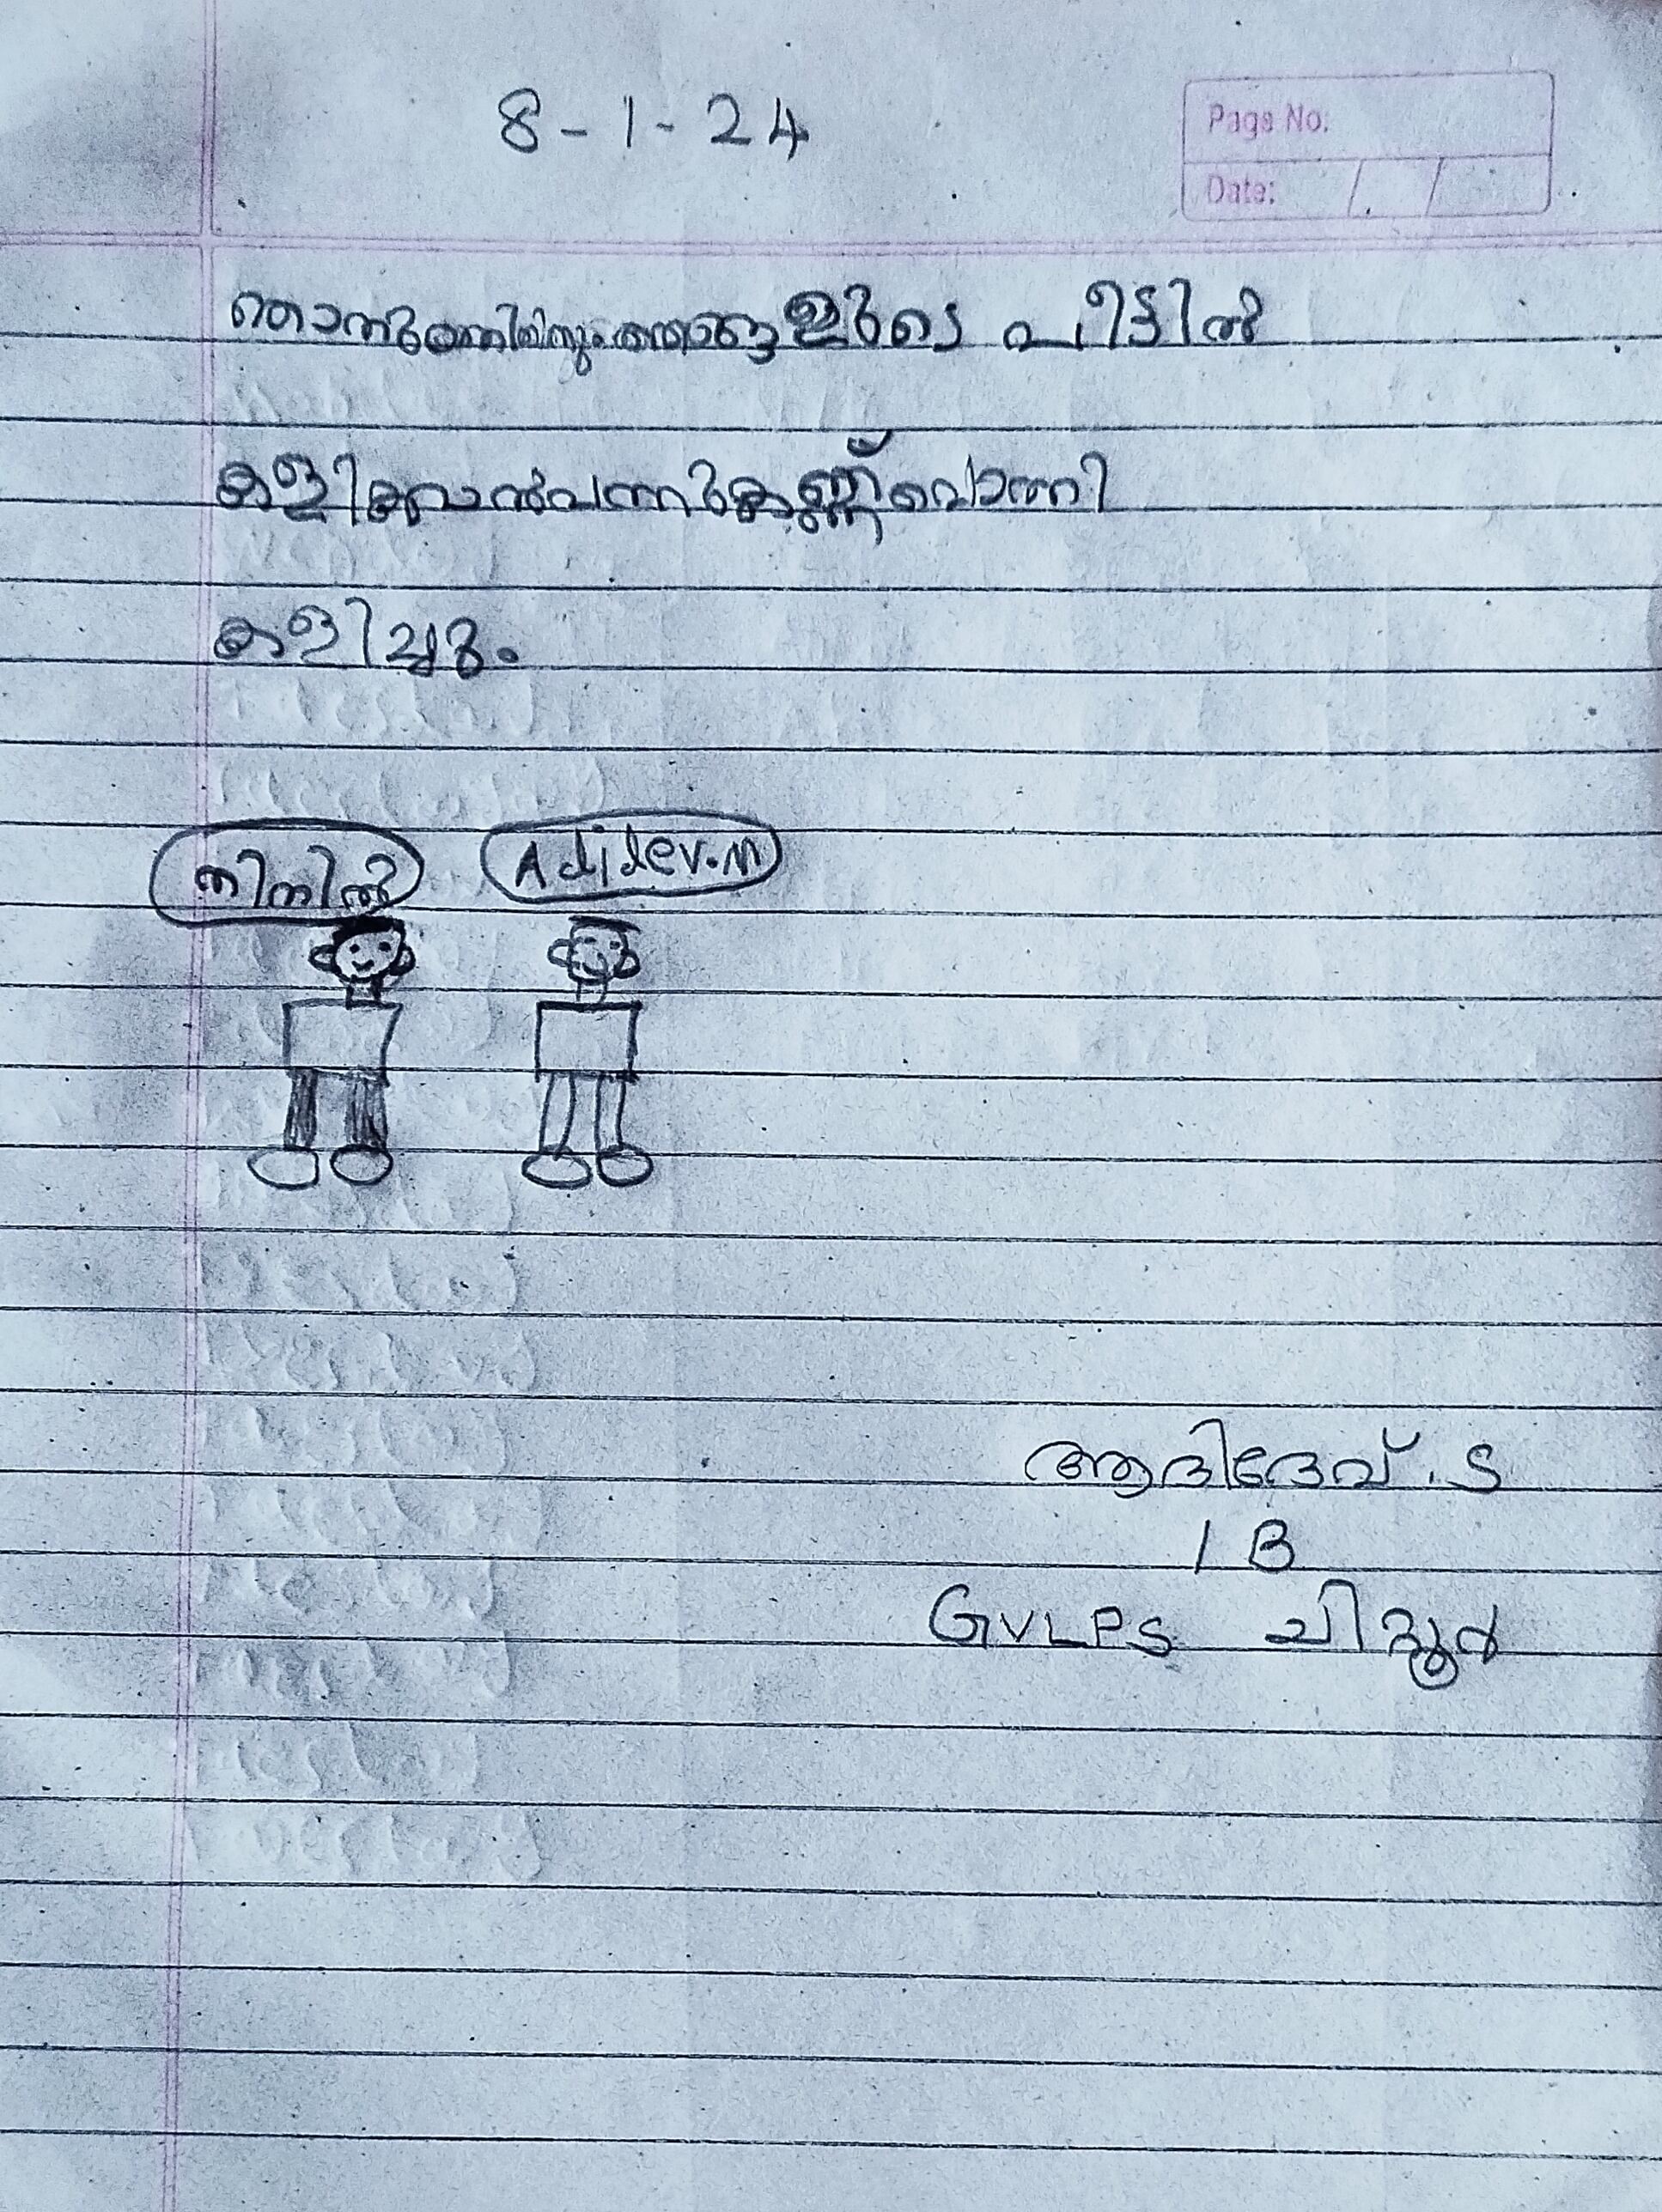 8-1-24
Page No.
Date: / /
ഞങ്ങളുടെ വീട്ടിൽ
കളിക്കുവാൻ വന്നു കണ്ണ് പൊത്തി
കളിച്ചു.
നിനിൽ Adidev.m
ആദിദേവ്. S
1 B
GVLPS ചിറ്റൂർ